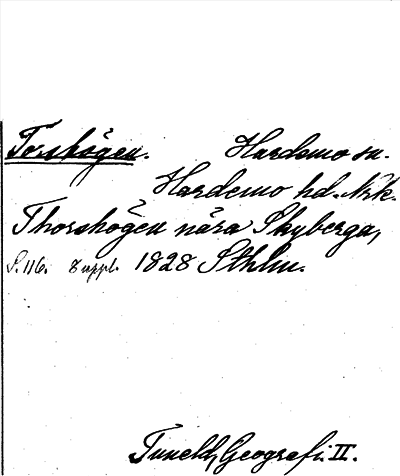 Torshögen. Hardemo sn.
Hardemo hd. Nrk.
Thorshögen nära Skyberga,
S. 116. 8 uppl. 1828 Sthlm.
Tuneld, Geografi. II.